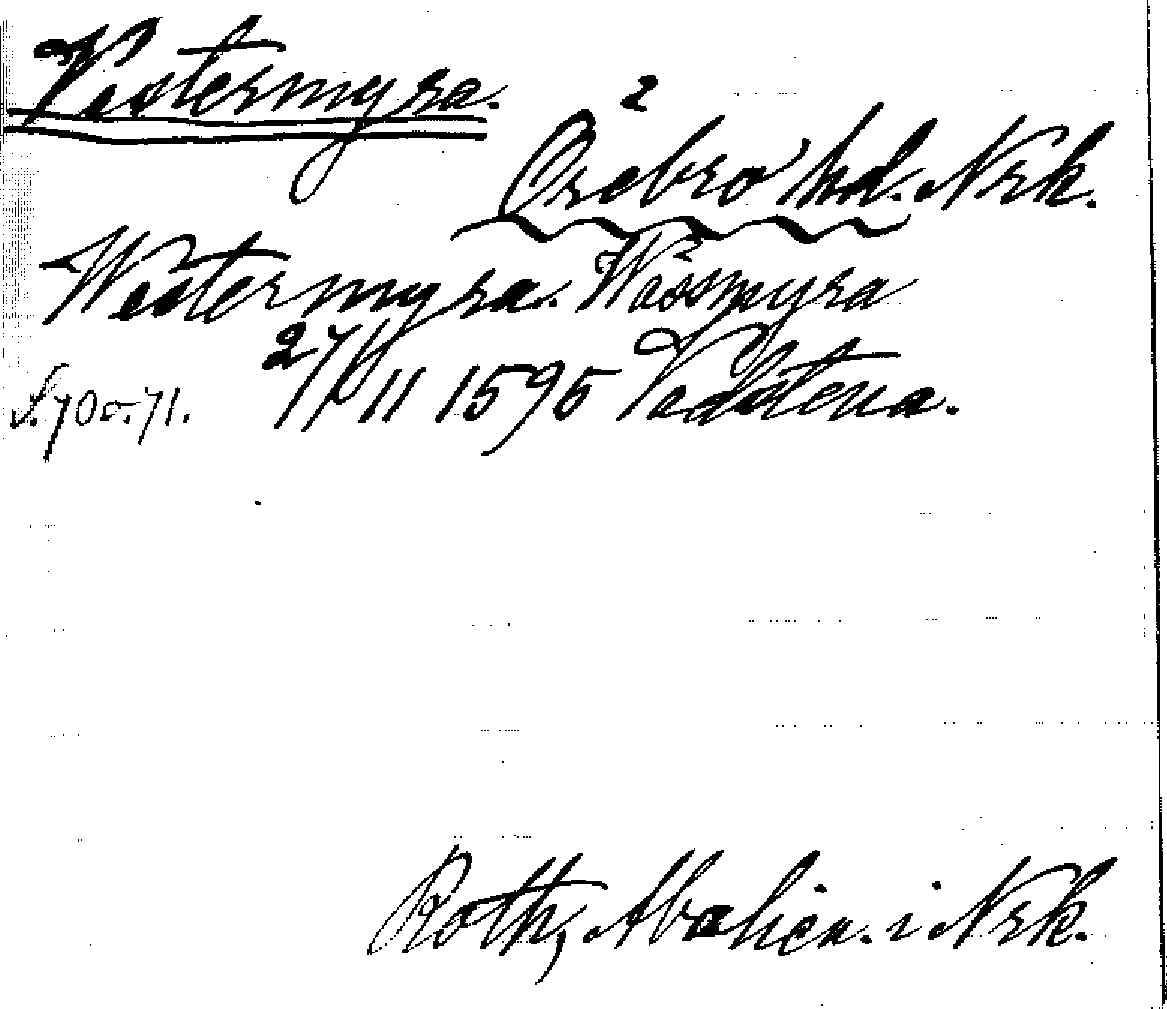 Vestermyra.
2
Örebro hd. Nrk.
Westermyra. Wäsmyra
S. 70 o. 71. 27/11 1595 Vadstena.
Roth, Abalien. i Nrk.